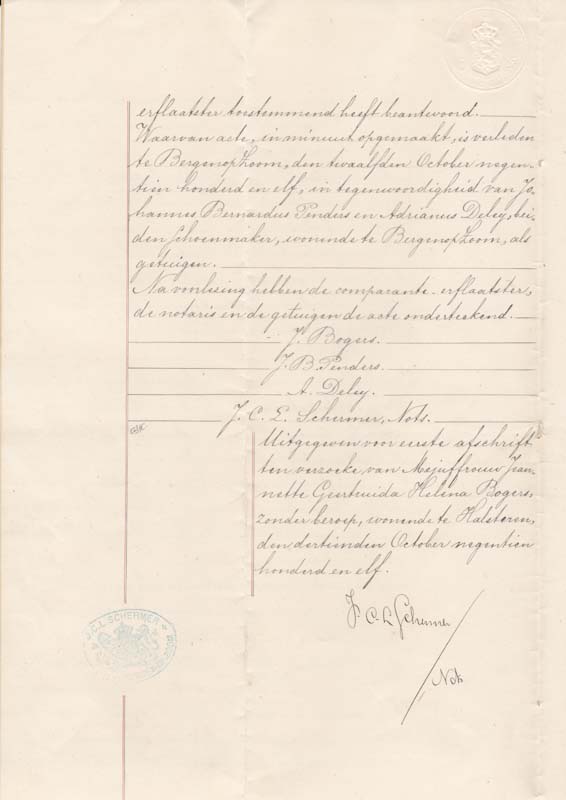 erflaatster toestemmend heeft beantwoord.
Waarvan acte, in minuut opgemaakt, is verleden
te Bergen op Zoom, den twaalfden October negen-
tien honderd en elf, in tegenwoordigheid van Jo-
hannes Bernardus Penders en Adrianus Deley, bei-
den schoenmaker, wonende te Bergen op Zoom, als
getuigen.
Na voorlezing hebben de comparante-erflaatster,
de notaris en de getuigen de acte onderteekend.
J. Bogers.
J. B. Penders.
A. Deley.
J. C. L. Schermer, Nots.
Uitgegeven voor eerste afschrift
ten verzoeke van Mejuffrouw Jean-
nette Geertruida Helena Bogers,
zonder beroep, wonende te Halsteren,
den dertienden October negentien
honderd en elf.
J. C. L. Schermer
Nots
C.L. SCHERMER